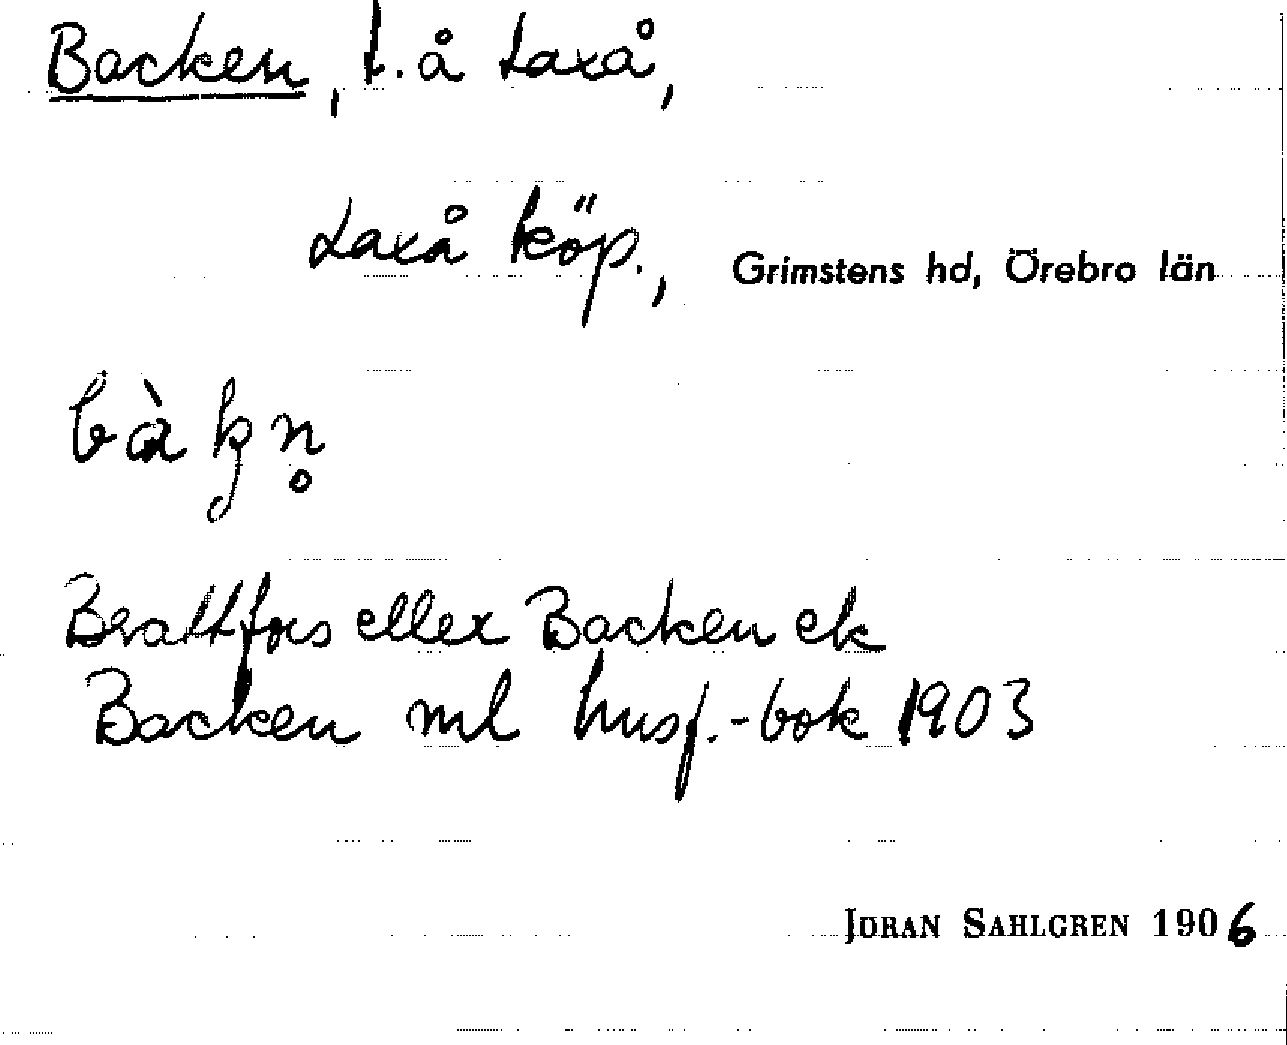 Backen, t. å Laxå,
Laxå köp., Grimstens hd, Örebro län
bàkn̥
Brattfors eller Backen ek
Backen ml husf.-bok 1903
JÖRAN SAHLGREN 1906